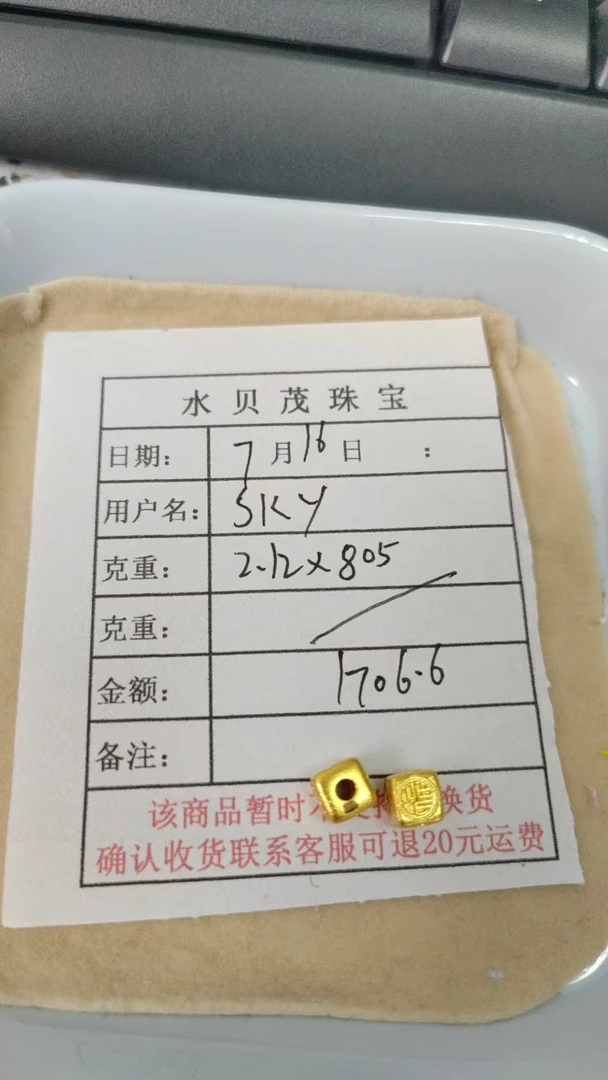 水贝茂珠宝
日期: 7月16日 :
用户名: SKY
克重: 2.12×805
克重:
金额: 1706.6
备注:
该商品暂时 换货
确认收货联系客服可退20元运费